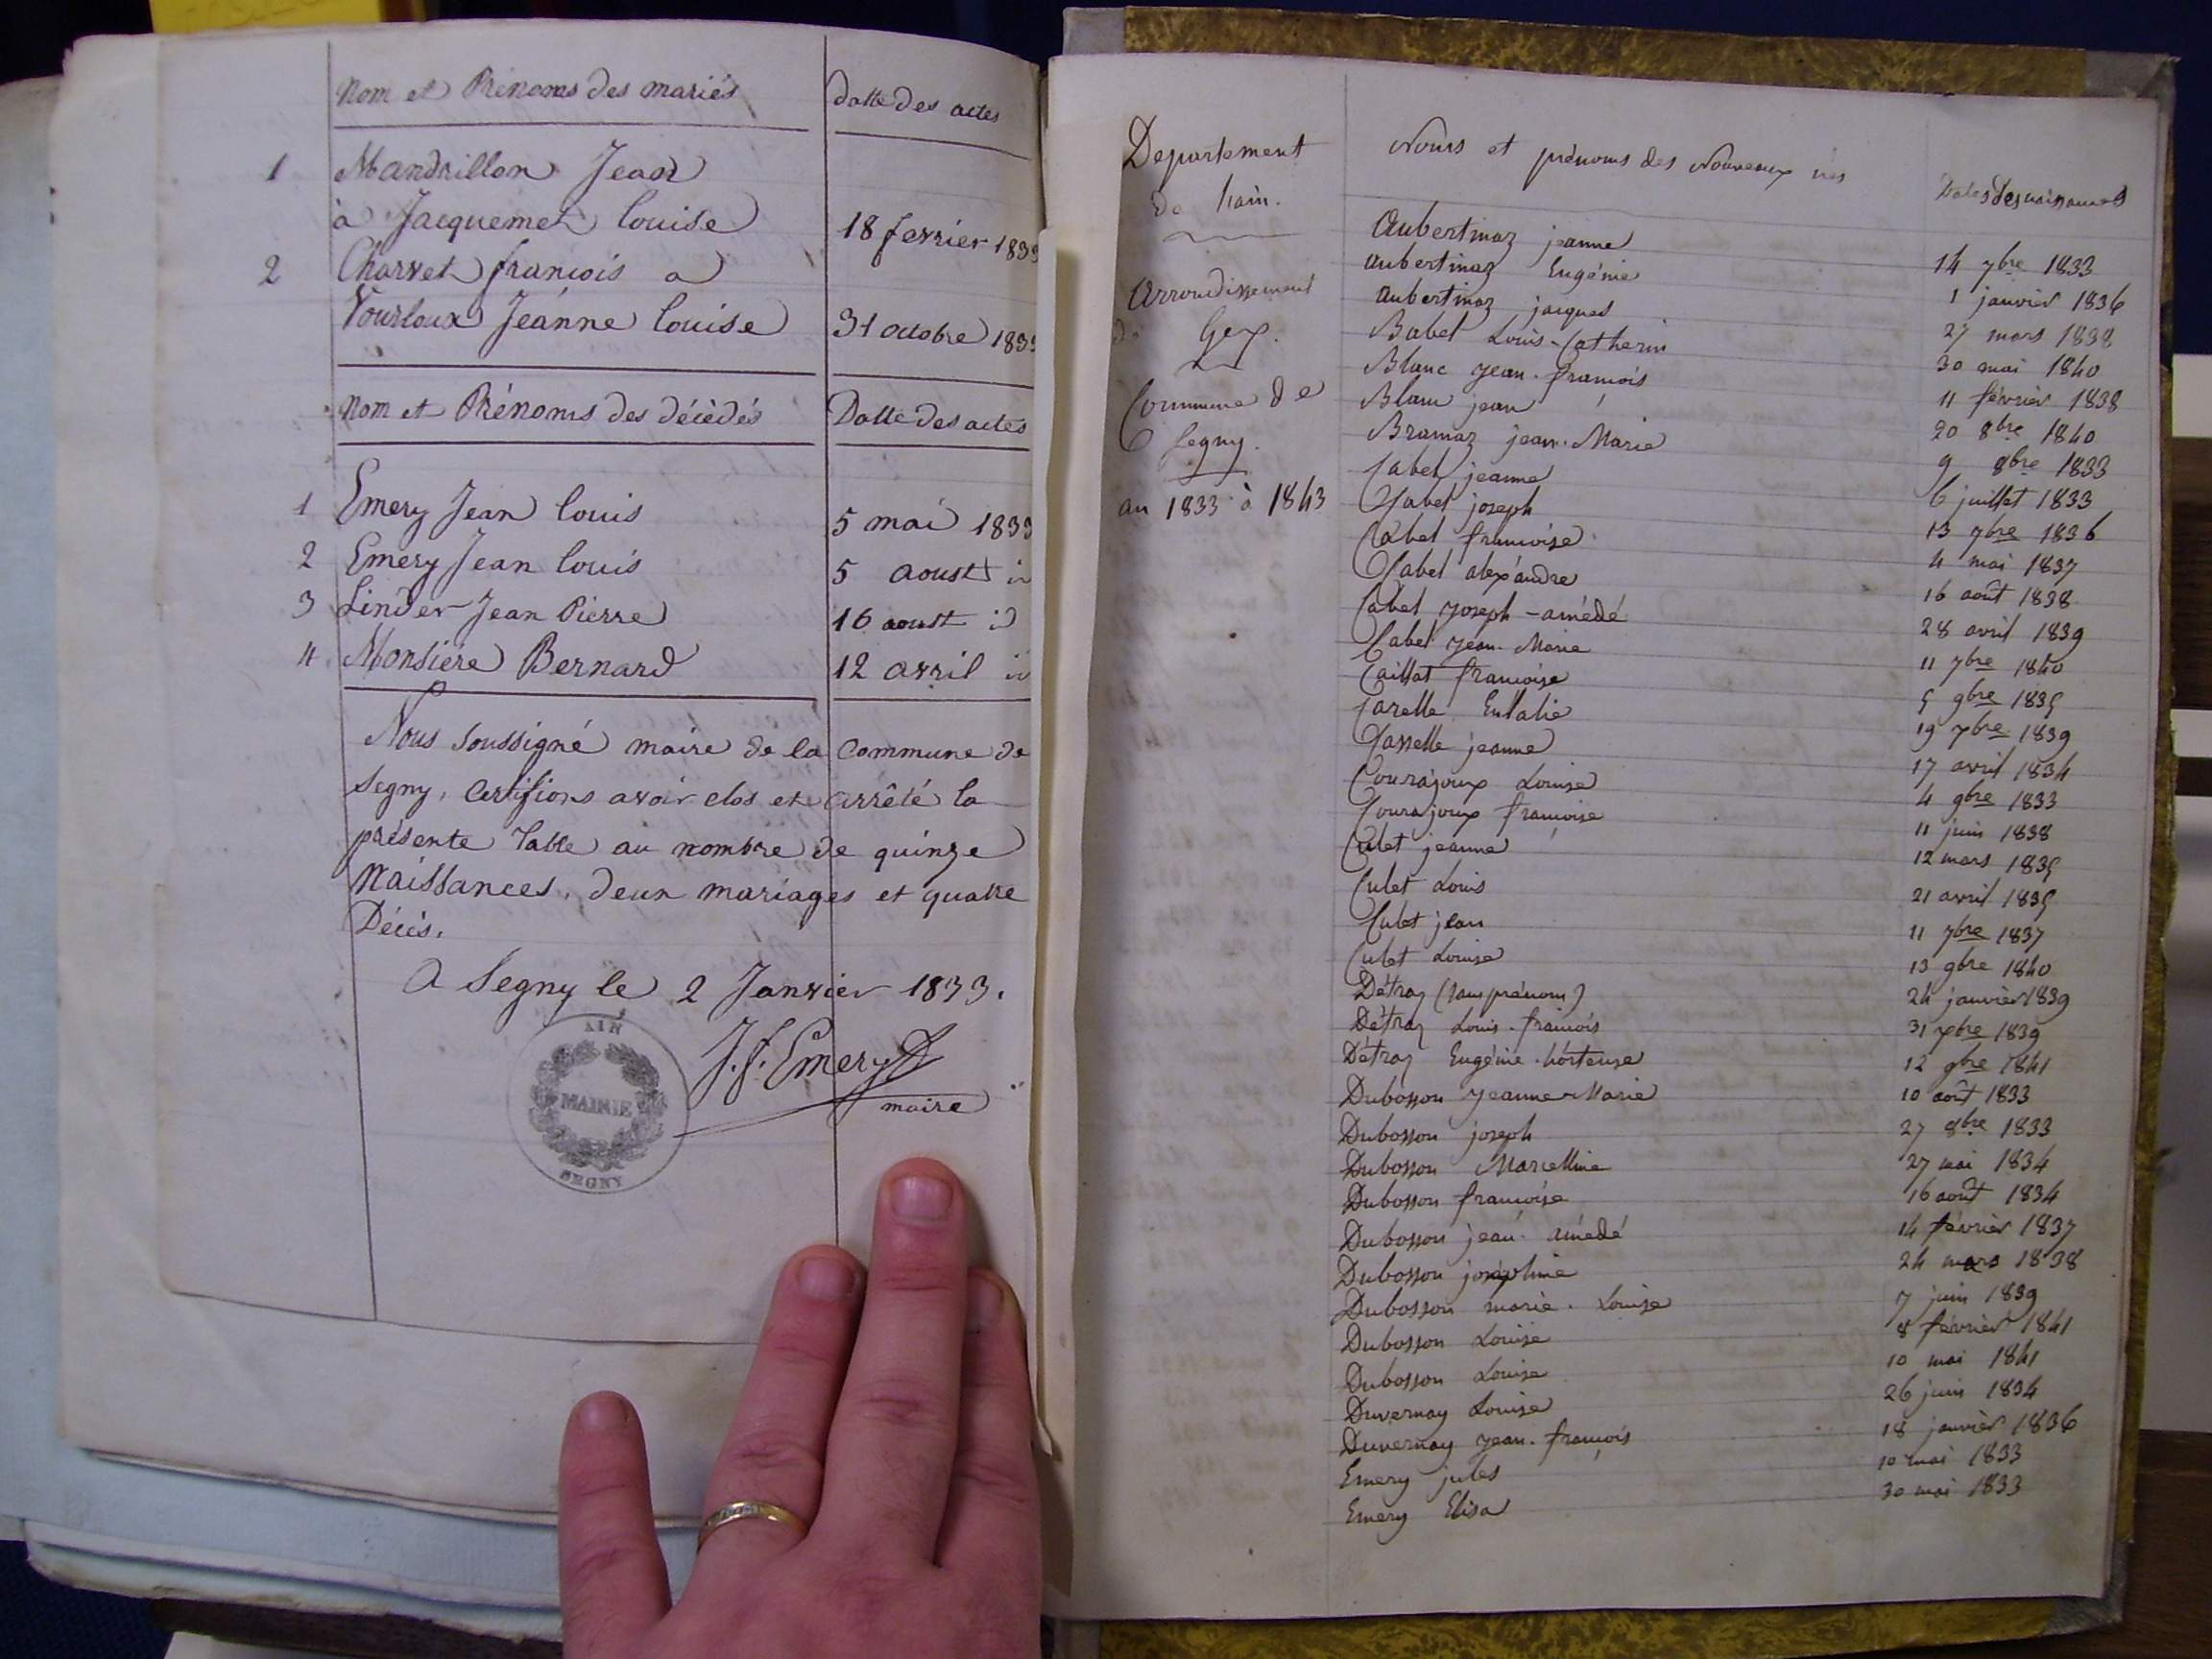 Nom et Prénoms des mariés
datte des actes
1 Mandrillon Jean
à Jacquemet louise 18 fevrier 183
2 Charvet francois a
Vourloux Jeánne louise 31 octobre 183
Nom et Prénoms des décèdés Datte des actes
1 Emery Jean louis 5 mai 1833
2 Emery Jean louis 5 aoust
3 Linder Jean Pierre 16 aoust id
4 Monsiére Bernard 12 avril
Nous soussigné maire de la commune de
Segny, certifions avoir clos et arrêté la
présente table au nombre de quinze
Naissances, deux mariages et quatre
Décès.
A Segny le 2 Janvier 1833.
J. f. Emery
maire
AIN
MAIRIE
SEGNY
Departement
de lain.
Arrondissement
de Gex.
Commune de
Segny.
an 1833 à 1843
Noms et prénoms des Nouveaux nés
Dates des naissances
Aubertinaz jeanne 14 7bre 1833
Aubertinaz Eugénie 1 janvier 1836
Aubertinaz jacques 27 mars 1838
Babel Louis-Catherin 30 mai 1840
Blanc Jean-françois 11 février 1838
Blanc jean 20 8bre 1840
Bramaz jean-Marie 9 8bre 1833
Cabel jeanne 6 juillet 1833
Cabel joseph 13 7bre 1836
Cabel francoise 4 mai 1837
Cabel alexandre 16 août 1838
Cabel Joseph-amédé 28 avril 1839
Cabel Jean-Marie 11 7bre 1840
Caillat francoise 5 9bre 1835
Carelle Eulalie 19 7bre 1839
Casselle jeanne 17 avril 1834
Courajoux Louise 4 9bre 1833
Courajoux francoise 11 juin 1838
Culet jeanne 12 mars 1835
Culet Louis 21 avril 1835
Culet jean 11 7bre 1837
Culet Louise 13 9bre 1840
Détraz (sans prénom) 24 janvier 1839
Détraz Louis-francois 31 xbre 1839
Détraz Eugénie-hortense 12 9bre 1841
Dubosson Jeanne-Marie 10 août 1833
Dubosson joseph 27 8bre 1833
Dubosson Marcelline 27 mai 1834
Dubosson francoise 16 août 1834
Dubosson jean-amédé 14 février 1837
Dubosson joséphine 24 mars 1838
Dubosson marie-Louise 7 juin 1839
Dubosson Louise 8 février 1841
Dubosson Louise 10 mai 1841
Duvernay Louise 26 juin 1834
Duvernay Jean-françois 18 janvier 1836
Emery jules 10 mai 1833
Emery Elisa 30 mai 1833